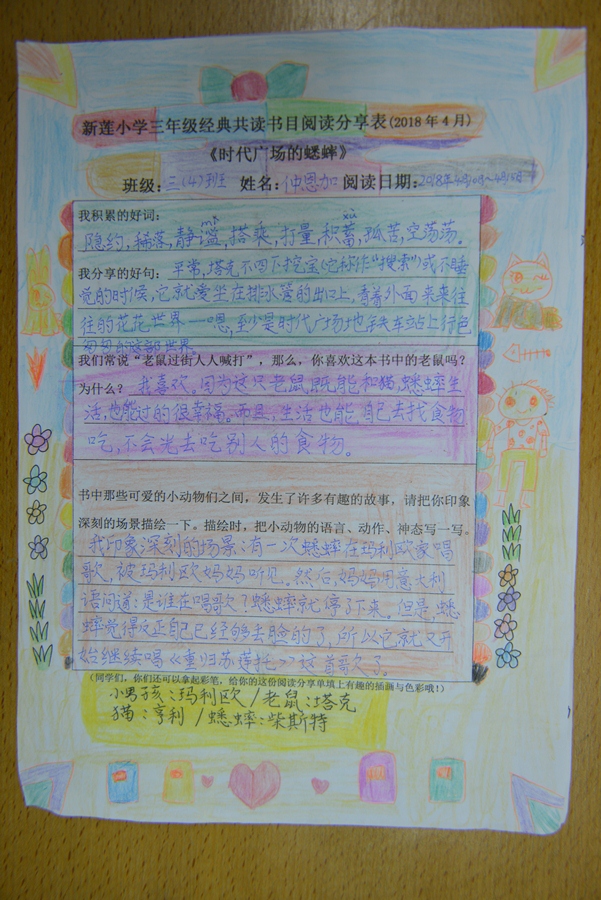 新莲小学三年级经典共读书目阅读分享表(2018年4月)
《时代广场的蟋蟀》
班级:三(4)班 姓名:仲恩加 阅读日期:2018年4月
我积累的好词:
mì xù
隐约,稀落,静谧,搭乘,打量,积蓄,孤苦,空荡荡。
我分享的好句:平常,塔克不四下挖宝(它称作“搜索”)或不睡
觉的时候,它就爱坐在排水管的出口上,看着外面来来往
往的花花世界——嗯,至少是时代广场地铁车站上行色
匆匆的这部世界
我们常说“老鼠过街人人喊打”,那么,你喜欢这本书中的老鼠吗?
为什么?我喜欢。因为这只老鼠既能和猫,蟋蟀生
活,也能过的很幸福。而且,生活也能自己去找食物
吃,不会光去吃别人的食物。
书中那些可爱的小动物们之间,发生了许多有趣的故事,请把你印象
深刻的场景描绘一下。描绘时,把小动物的语言、动作、神态写一写。
我印象深刻的场景:有一次蟋蟀在玛利欧家唱
歌,被玛利欧妈妈听见。然后,妈妈用意大利
语问道:是谁在唱歌?蟋蟀就停了下来。但是,蟋
蟀觉得反正自己已经够丢脸的了,所以它就又开
始继续唱《重归苏莲托》这首歌了。
(同学们,你们还可以拿起彩笔,给你的这份阅读分享单填上有趣的插画与色彩哦!)
小男孩:玛利欧/老鼠:塔克
猫:亨利/蟋蟀:柴斯特